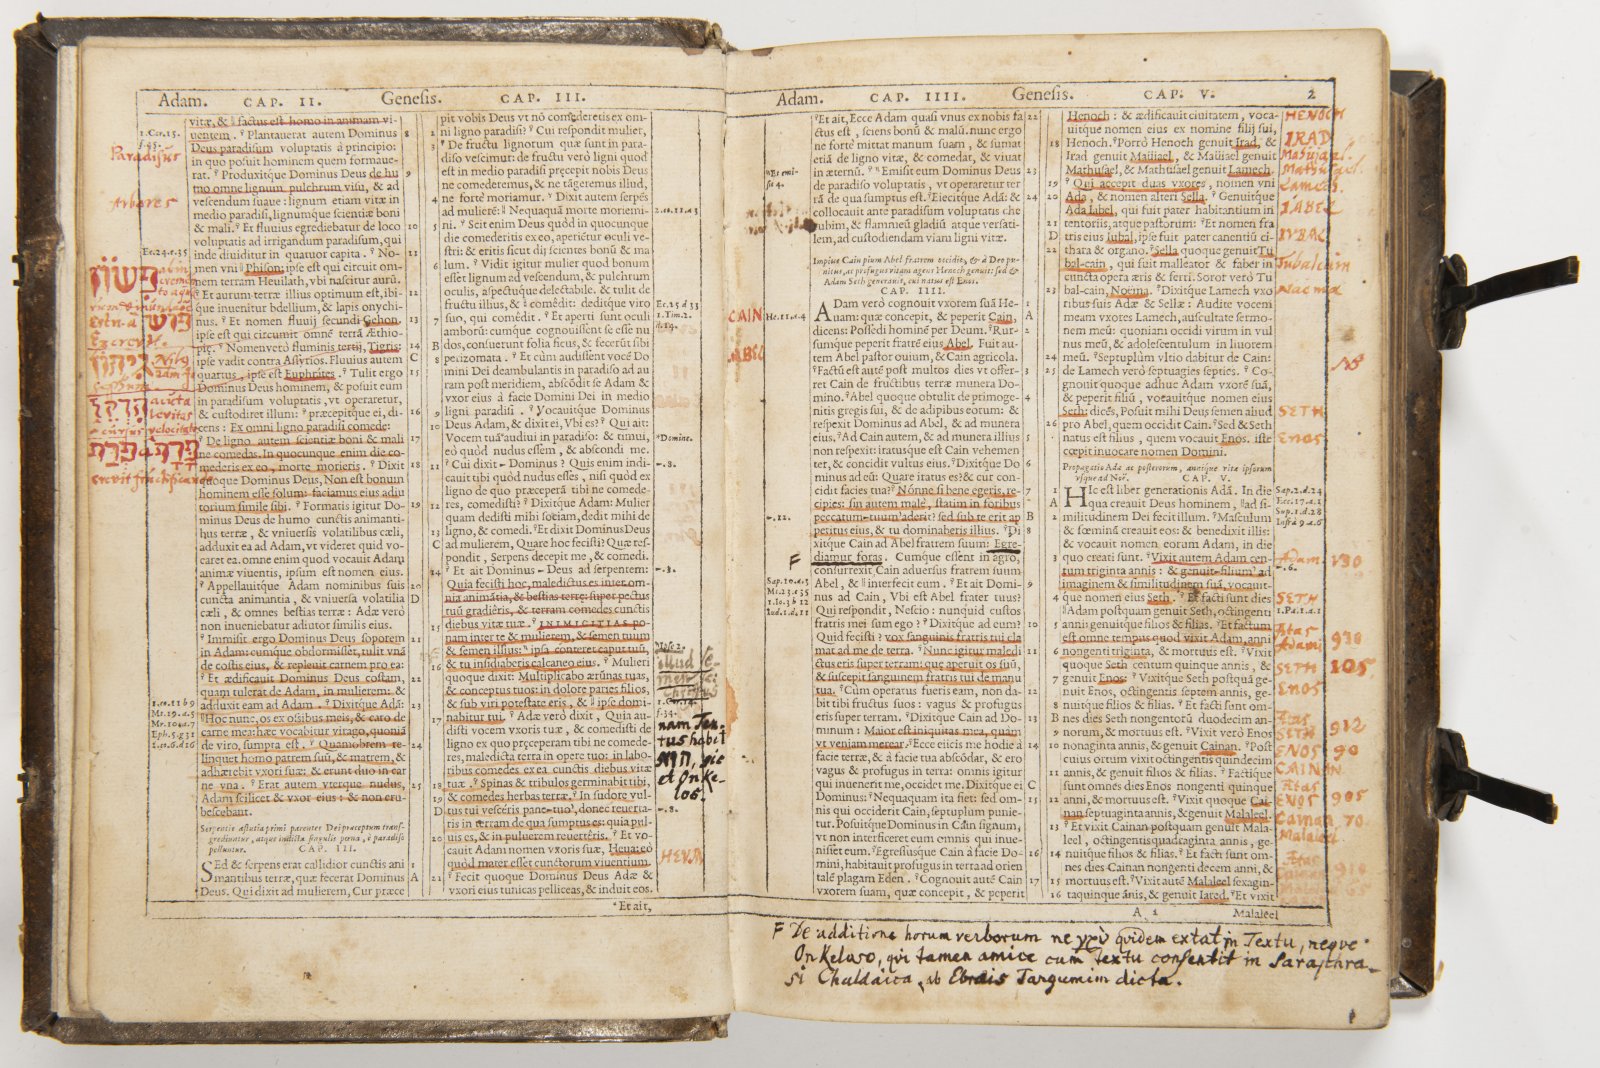 Adam. CAP. II. Genesis. CAP. III.
vitæ, & ‖ factus est homo in animam vi-
uentem. ⁹ Plantauerat autem Dominus
Deus paradisum voluptatis à principio:
in quo posuit hominem quem formaue-
rat. ⁹ Produxitque Dominus Deus de hu
mo omne lignum pulchrum visu, & ad
vescendum suaue: lignum etiam vitæ in
medio paradisi, lignumque scientiæ boni
& mali. ⁹ Et fluuius egrediebatur de loco
voluptatis ad irrigandum paradisum, qui
inde diuiditur in quatuor capita. ⁹ No-
men vni ‖ Phison: ipse est qui circuit om-
nem terram Heuilath, vbi nascitur aurū.
⁹ Et aurum terræ illius optimum est, ibi-
que inuenitur bdellium, & lapis onychi-
nus. ⁹ Et nomen fluuij secundi Gehon.
ipse est qui circumit omnē terrā Æthio-
pię. ⁹ Nomen verò fluminis tertij, Tigris:
ipse vadit contra Assyrios. Fluuius autem
quartus, ipse est Euphrátes. ⁹ Tulit ergo
Dominus Deus hominem, & posuit eum
in paradisum voluptatis, vt operaretur,
& custodiret illum: ⁹ præcepitque ei, di-
cens: Ex omni ligno paradisi comede:
⁹ De ligno autem scientiæ boni & mali
ne comedas. In quocunque enim die co-
mederis ex eo, morte morieris. ⁹ Dixit
quoque Dominus Deus, Non est bonum
hominem esse solum: faciamus eius adiu
torium simile sibi. ⁹ Formatis igitur Do-
minus Deus de humo cunctis animanti-
bus terræ, & vniuersis volatilibus cæli,
adduxit ea ad Adam, vt videret quid vo-
caret ea. omne enim quod vocauit Adam
animæ viuentis, ipsum est nomen eius.
⁹ Appellauitque Adam nominibus suis
cuncta animantia, & vniuersa volatilia
cæli, & omnes bestias terræ: Adæ verò
non inueniebatur adiutor similis eius.
⁹ Immisit ergo Dominus Deus soporem
in Adam: cumque obdormisset, tulit vnā
de costis eius, & repleuit carnem pro ea:
⁹ Et ædificauit Dominus Deus costam,
quam tulerat de Adam, in mulierem: &
adduxit eam ad Adam. ⁹ Dixitque Adā:
‖ Hoc nunc, os ex ossibus meis, & caro de
carne mea: hæc vocabitur virago, quoniā
de viro, sumpta est. ⁹ Quamobrem re-
linquet homo patrem suū, & matrem, &
adhærebit vxori suæ: & erunt duo in car
ne vna. ⁹ Erat autem vterque nudus,
Adam scilicet & vxor eius: & non eru-
bescebant.
Serpentis astutia primi parentes Dei præceptum trans-
grediuntur, atque indicta singulis pœna, è paradiso
pelluntur.
CAP. III.
SEd & serpens erat callidior cunctis ani
mantibus terræ, quæ fecerat Dominus
Deus. Qui dixit ad mulierem, Cur præce
pit vobis Deus vt nō comederetis ex om-
ni ligno paradisi? ⁹ Cui respondit mulier,
⁹ De fructu lignorum quæ sunt in para-
diso vescimur: de fructu verò ligni quod
est in medio paradisi pręcepit nobis Deus
ne comederemus, & ne tāgeremus illud,
ne fortè moriamur. ⁹ Dixit autem serpēs
ad mulierē: ‖ Nequaquā morte moriemi-
ni. ⁹ Scit enim Deus quòd in quocunque
die comederitis ex eo, aperiētur oculi ve-
stri: & eritis sicut dij scientes bonū & ma
lum. ⁹ Vidit igitur mulier quod bonum
esset lignum ad vescendum, & pulchrum
oculis, aspectuque delectabile. & tulit de
fructu illius, & ‖ comēdit: deditque viro
suo, qui comēdit. ⁹ Et aperti sunt oculi
amborū: cumque cognouissent se esse nu
dos, consuerunt folia ficus, & fecerūt sibi
perizomata. ⁹ Et cùm audissent vocē Do
mini Dei deambulantis in paradiso ad au
ram post meridiem, abscōdit se Adam &
vxor eius à facie Domini Dei in medio
ligni paradisi. ⁹ Vocauitque Dominus
Deus Adam, & dixit ei, Vbi es? ⁹ Qui ait:
Vocem tuā audiui in paradiso: & timui,
eò quòd nudus essem, & abscondi me.
⁹ Cui dixit Dominus? Quis enim indi-
cauit tibi quòd nudus esses, nisi quòd ex
ligno de quo præceperā tibi ne comede-
res, comedisti? ⁹ Dixitque Adam: Mulier
quam dedisti mihi sociam, dedit mihi de
ligno, & comedi. ⁹ Et dixit Dominus Deus
ad mulierem, Quare hoc fecisti? Quæ res-
pondit, Serpens decepit me, & comedi.
⁹ Et ait Dominus Deus ad serpentem:
Quia fecisti hoc, maledictus es inter om-
nia animātia, & bestias terrę: super pectus
tuū gradiêris, & terram comedes cunctis
diebus vitæ tuæ. ⁹ INIMICITIAS po-
nam inter te & mulierem, & semen tuum
& semen illius: ‖ ipsa conteret caput tuū,
& tu insidiaberis calcaneo eius. ⁹ Mulieri
quoque dixit: Multiplicabo ærūnas tuas,
& conceptus tuos: in dolore paries filios,
& sub viri potestate eris, & ‖ ipse domi-
nabitur tui. ⁹ Adæ verò dixit, Quia au-
disti vocem vxoris tuæ, & comedisti de
ligno ex quo pręceperam tibi ne comede-
res, maledicta terra in opere tuo: in labo-
ribus comedes ex ea cunctis diebus vitæ
tuæ. ⁹ Spinas & tribulos germinabit tibi,
& comedes herbas terræ. ⁹ In sudore vul-
tus tui vescéris pane tuo, donec reuerta-
ris in terram de qua sumptus es: quia pul-
uis es, & in puluerem reuertêris. ⁹ Et vo-
cauit Adam nomen vxoris suæ, Heua: eò
quòd mater esset cunctorum viuentium.
⁹ Fecit quoque Dominus Deus Adæ &
vxori eius tunicas pelliceas, & induit eos.
⁹ Et ait,
Paradisus
Arbores
פישון
HEVA
nam Tex-
tus habet
הוא, sic
et Onke-
los.
Adam. CAP. IIII. Genesis. CAP. V. 2
⁹ Et ait, Ecce Adam quasi vnus ex nobis fa
ctus est, sciens bonū & malū. nunc ergo
ne fortè mittat manum suam, & sumat
etiā de ligno vitæ, & comedat, & viuat
in æternū. ⁹ Emisit eum Dominus Deus
de paradiso voluptatis, vt operaretur ter
rā de qua sumptus est. ⁹ Eiecitque Adā: &
collocauit ante paradisum voluptatis che
rubim, & flammeū gladiū atque versati-
lem, ad custodiendam viam ligni vitæ.
Impius Cain pium Abel fratrem occidit, & à Deo pu-
nitus, ac profugus vitam agens Henoch genuit: sed &
Adam Seth generauit, cui natus est Enos.
CAP. IIII.
ADam verò cognouit vxorem suā He-
uam: quæ concepit, & peperit Cain,
dicens: Possēdi hominē per Deum. ⁹ Rur-
sumque peperit fratrē eius Abel. Fuit au-
tem Abel pastor ouium, & Cain agricola.
⁹ Factū est autē post multos dies vt offer-
ret Cain de fructibus terræ munera Do-
mino. ⁹ Abel quoque obtulit de primoge-
nitis gregis sui, & de adipibus eorum: &
respexit Dominus ad Abel, & ad munera
eius. ⁹ Ad Cain autem, & ad munera illius
non respexit: iratusque est Cain vehemen
ter, & concidit vultus eius. ⁹ Dixitque Do
minus ad eū: Quare iratus es? & cur con-
cidit facies tua? ⁹ Nónne si bene egeris, re-
cipies: sin autem malè, statim in foribus
peccatum tuum aderit? sed sub te erit ap
petitus eius, & tu dominaberis illius. ⁹ Di
xitque Cain ad Abel fratrem suum: Egre-
diamur foras. Cumque essent in agro,
consurrexit Cain aduersus fratrem suum
Abel, & ‖ interfecit eum. ⁹ Et ait Domi-
nus ad Cain, Vbi est Abel frater tuus?
Qui respondit, Nescio: nunquid custos
fratris mei sum ego? ⁹ Dixitque ad eum?
Quid fecisti? vox sanguinis fratris tui cla
mat ad me de terra. ⁹ Nunc igitur maledi
ctus eris super terram: quę aperuit os suū,
& suscepit sanguinem fratris tui de manu
tua. ⁹ Cùm operatus fueris eam, non da-
bit tibi fructus suos: vagus & profugus
eris super terram. ⁹ Dixitque Cain ad Do-
minum: Maior est iniquitas mea, quàm
vt veniam merear. ⁹ Ecce eiicis me hodie à
facie terræ, & à facie tua abscōdar, & ero
vagus & profugus in terra: omnis igitur
qui inuenerit me, occidet me. Dixitque ei
Dominus: ⁹ Nequaquam ita fiet: sed om-
nis qui occiderit Cain, septuplum punie-
tur. Posuitque Dominus in Cain signum,
vt non interficeret eum omnis qui inue-
nisset eum. ⁹ Egressusque Cain à facie Do-
mini, habitauit profugus in terra ad orien
talē plagam Eden. ⁹ Cognouit autē Cain
vxorem suam, quæ concepit, & peperit
Henoch: & ædificauit ciuitatem, voca-
uitque nomen eius ex nomine filij sui,
Henoch. ⁹ Porrò Henoch genuit Irad, &
Irad genuit Mauiael, & Mauiael genuit
Mathusael, & Mathusael genuit Lamech.
⁹ Qui accepit duas vxores, nomen vni
Ada, & nomen alteri Sella. ⁹ Genuitque
Ada Iabel, qui fuit pater habitantium in
tentoriis, atque pastorum: ⁹ Et nomen fra
tris eius Iubal, ipse fuit pater canentiū ci-
thara & organo. ⁹ Sella quoque genuit Tu
bal-cain, qui fuit malleator & faber in
cuncta opera æris & ferri. Soror verò Tu
bal-cain, Noëma. ⁹ Dixitque Lamech vxo
ribus suis Adæ & Sellæ: Audite vocem
meam vxores Lamech, auscultate sermo-
nem meū: quoniam occidi virum in vul
nus meū, & adolescentulum in liuorem
meū. ⁹ Septuplum vltio dabitur de Cain:
de Lamech verò septuagies septies. ⁹ Co-
gnouit quoque adhuc Adam vxorē suā,
& peperit filiū, vocauitque nomen eius
Seth: dicēs, Posuit mihi Deus semen aliud
pro Abel, quem occidit Cain. ⁹ Sed & Seth
natus est filius, quem vocauit Enos. iste
cœpit inuocare nomen Domini.
Propagatio Adæ ac posterorum, annique vitæ ipsorum
vsque ad Noë. CAP. V.
HIc est liber generationis Adā. In die
qua creauit Deus hominem, ‖ ad si-
militudinem Dei fecit illum. ⁹ Masculum
& fœminā creauit eos: & benedixit illis:
& vocauit nomen eorum Adam, in die
quo creati sunt. ⁹ Vixit autem Adam cen-
tum triginta annis: & genuit filium ad
imaginem & similitudinem suā, vocauit-
que nomen eius Seth. ⁹ Et facti sunt dies
‖ Adam postquam genuit Seth, octingenti
anni: genuitque filios & filias. ⁹ Et factum
est omne tempus quod vixit Adam, anni
nongenti triginta, & mortuus est. ⁹ Vixit
quoque Seth centum quinque annis, &
genuit Enos: ⁹ Vixitque Seth postquā ge-
nuit Enos, octingentis septem annis, ge-
nuitque filios & filias. ⁹ Et facti sunt om-
nes dies Seth nongentorū duodecim an-
norum, & mortuus est. ⁹ Vixit verò Enos
nonaginta annis, & genuit Cainan. ⁹ Post
cuius ortum vixit octingentis quindecim
annis, & genuit filios & filias. ⁹ Factique
sunt omnes dies Enos nongenti quinque
anni, & mortuus est. ⁹ Vixit quoque Cai-
nan septuaginta annis, & genuit Malaleel.
⁹ Et vixit Cainan postquam genuit Mala-
leel, octingentis quadraginta annis, ge-
nuitque filios & filias. ⁹ Et facti sunt om-
nes dies Cainan nongenti decem anni, &
mortuus est. ⁹ Vixit autē Malaleel sexagin-
ta quinque ānis, & genuit Iared. ⁹ Et vixit
A 2 Malaleel
CAIN
ABEL
HENOCH
IRAD
Lamech.
IABEL
IVBAL
Tubalcain
Naema
SETH
Enos
Adam 130
SETH
Ætas Adami 930
SETH 105.
ENOS
Ætas SETH 912
ENOS 90
CAINAN.
Ætas ENOS 905
Cainan 70.
Malaleel
F De additione horum verborum ne γρὺ quidem extat in Textu, neque
Onkeloso, qui tamen amice cum textu consentit in Paraphra-
si Chaldaica, ab Ebræis Targumim dicta.